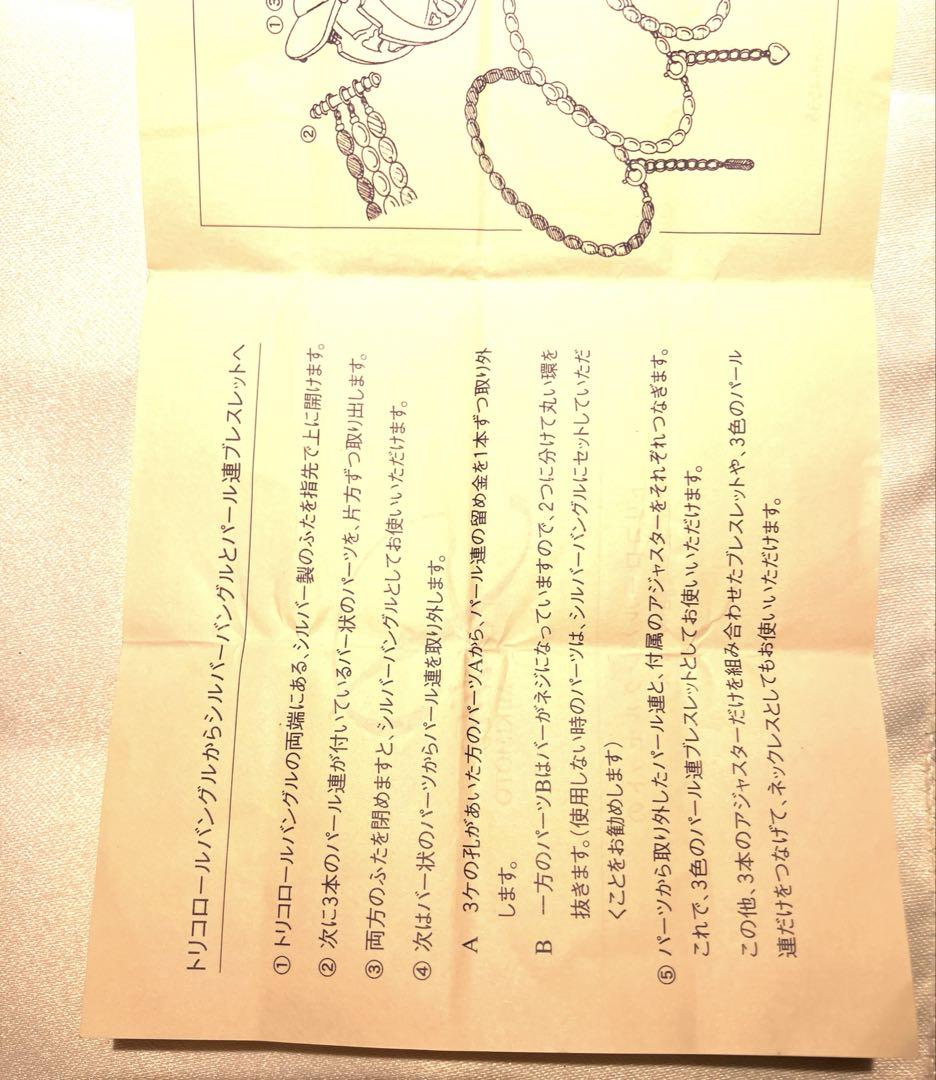 ①③
②
トリコロールバングルからシルバーバングルとパール連ブレスレットへ
① トリコロールバングルの両端にある、シルバー製のふたを指先で上に開けます。
② 次に3本のパール連が付いているバー状のパーツを、片方ずつ取り出します。
③ 両方のふたを閉めますと、シルバーバングルとしてお使いいただけます。
④ 次はバー状のパーツからパール連を取り外します。
A 3ケの孔があいた方のパーツAから、パール連の留め金を1本ずつ取り外
します。
B 一方のパーツBはバーがネジになっていますので、2つに分けて丸い環を
抜きます。(使用しない時のパーツは、シルバーバングルにセットしていただ
くことをお勧めします)
⑤ パーツから取り外したパール連と、付属のアジャスターをそれぞれつなぎます。
これで、3色のパール連ブレスレットとしてお使いいただけます。
この他、3本のアジャスターだけを組み合わせたブレスレットや、3色のパール
連だけをつなげて、ネックレスとしてもお使いいただけます。